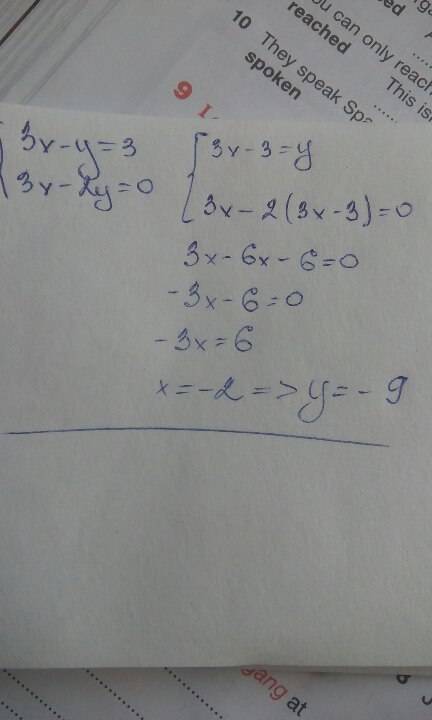 ou can only reach
reached
This is
10 They speak Spa
spoken
9
{ 3x-y=3
3x-2y=0
{ 3x-3=y
3x-2(3x-3)=0
3x-6x-6=0
-3x-6=0
-3x=6
x=-2=>y=-9
gang at